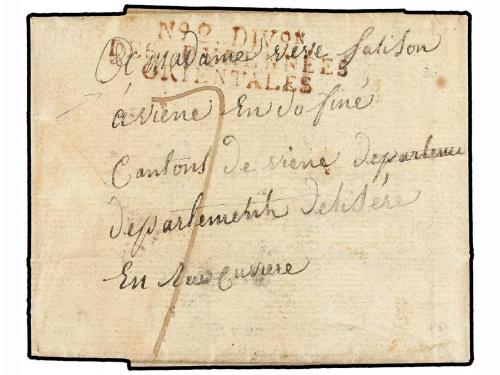 No 2. DIVon
DES PYRENEES
ORIENTALES
A madame veve Salison
a viene En dofiné
Cantons de viene departemen
departementh delisére
En Rue Cuviere
7